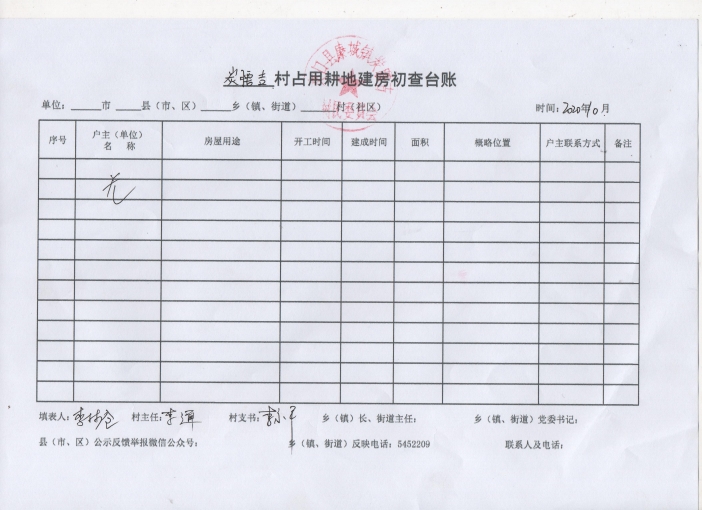 村占用耕地建房初查台账
单位：____市____县（市、区）____乡（镇、街道）____村（社区） 时间：2020年10月
序号 户主（单位）名 称 房屋用途 开工时间 建成时间 面积 概略位置 户主联系方式 备注
无
填表人： 村主任：李通 村支书： 乡（镇）长、街道主任： 乡（镇、街道）党委书记：
县（市、区）公示反馈举报微信公众号： 乡（镇、街道）反映电话：5452209 联系人及电话：